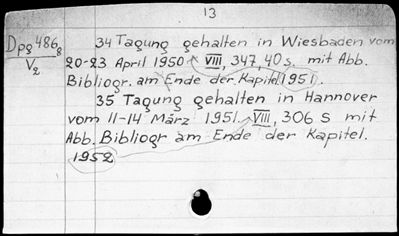 13
Dpg 486 8
V2
34 Tagung gehalten in Wiesbaden vom
20-23 April 1950 VIII, 347, 40 s. mit Abb.
Bibliogr. am Ende der Kapitel. 1951.
35 Tagung gehalten in Hannover
vom 11-14 März 1951. VIII, 306 S mit
Abb. Bibliogr am Ende der Kapitel.
1952